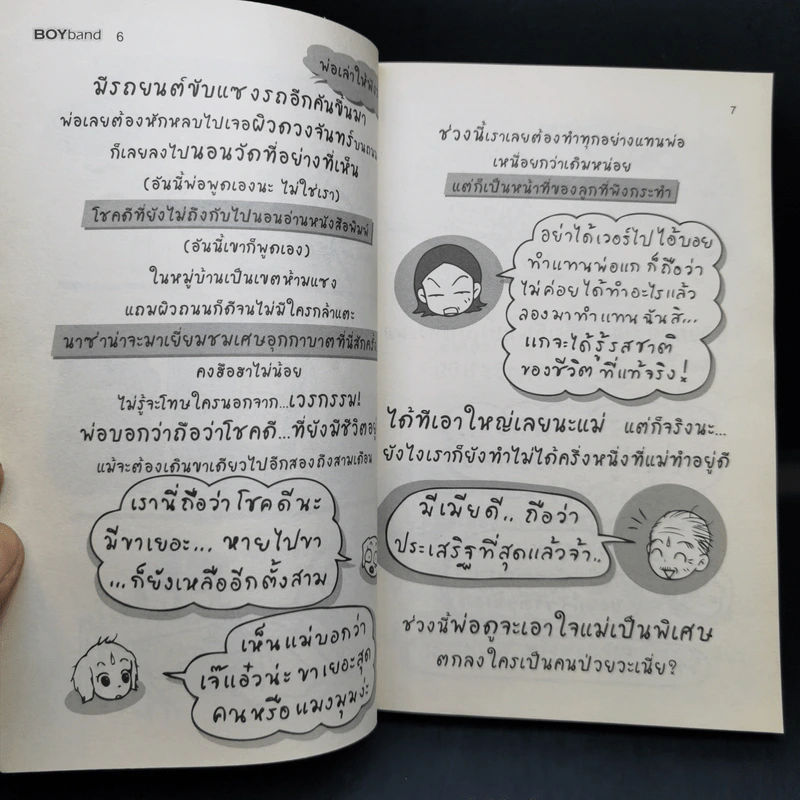 BOYband 6
พ่อเล่าให้ฟัง
มีรถยนต์ขับแซงรถอีกคันขึ้นมา
พ่อเลยต้องหักหลบไปเจอผิวดวงจันทร์บนถนน
ก็เลยลงไปนอนวัดที่อย่างที่เห็น
(อันนี้พ่อพูดเองนะ ไม่ใช่เรา)
โชคดีที่ยังไม่ถึงกับไปนอนอ่านหนังสือพิมพ์
(อันนี้เขาก็พูดเอง)
ในหมู่บ้านเป็นเขตห้ามแซง
แถมผิวถนนก็ดีจนไม่มีใครกล้าแตะ
นาซาน่าจะมาเยี่ยมชมเศษอุกกาบาตที่นี่สักครั้ง
คงฮือฮาไม่น้อย
ไม่รู้จะโทษใครนอกจาก...เวรกรรม!
พ่อบอกว่าถือว่าโชคดี...ที่ยังมีชีวิตอยู่
แม้จะต้องเดินขาเดียวไปอีกสองถึงสามเดือน
เรานี่ถือว่าโชคดีนะ
มีขาเยอะ... หายไปขา
...ก็ยังเหลืออีกตั้งสาม
เห็นแม่บอกว่า
เจ๊แอ๋วน่ะ ขาเยอะสุด
คนหรือแมงมุมง่ะ
7
ช่วงนี้เราเลยต้องทำทุกอย่างแทนพ่อ
เหนื่อยกว่าเดิมหน่อย
แต่ก็เป็นหน้าที่ของลูกที่พึงกระทำ
อย่าได้เวอร์ไป ไอ้บอย
ทำแทนพ่อแก ก็ถือว่า
ไม่ค่อยได้ทำอะไรแล้ว
ลองมาทำแทนฉันสิ...
แกจะได้รู้รสชาติ
ของชีวิต ที่แท้จริง!
ได้ทีเอาใหญ่เลยนะแม่ แต่ก็จริงนะ...
ยังไงเราก็ยังทำไม่ได้ครึ่งหนึ่งที่แม่ทำอยู่ดี
มีเมียดี.. ถือว่า
ประเสริฐที่สุดแล้วจ้า..
ช่วงนี้พ่อดูจะเอาใจแม่เป็นพิเศษ
ตกลงใครเป็นคนป่วยวะเนี่ย?